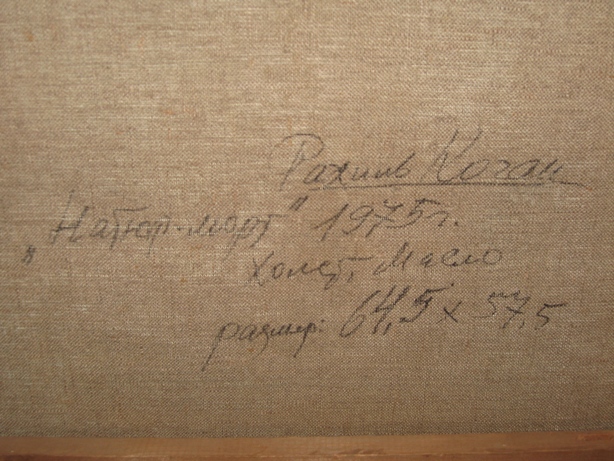 Рахиль Коган
„Натюр-морт" 1975г.
Холст, Масло
размер: 64,5 x 57,5